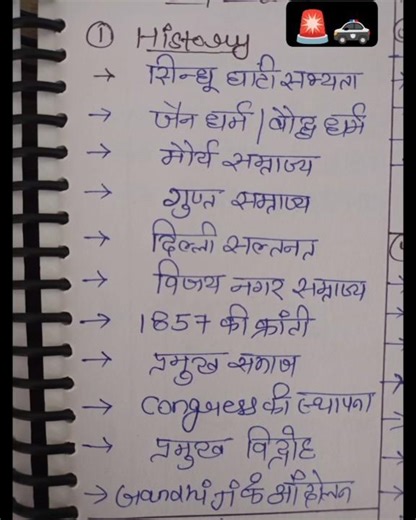 ① History
→ सिन्धू घाटी सभ्यता
→ जैन धर्म | बौद्ध धर्म
→ मौर्य सम्राज्य
→ गुप्त सम्राज्य
→ दिल्ली सल्तनत
→ विजय नगर सम्राज्य
→ 1857 की क्रांती
→ प्रमुख समाज
→ Congress की स्थापना
→ प्रमुख विद्रोह
→ Gandhi जी के आंदोलन